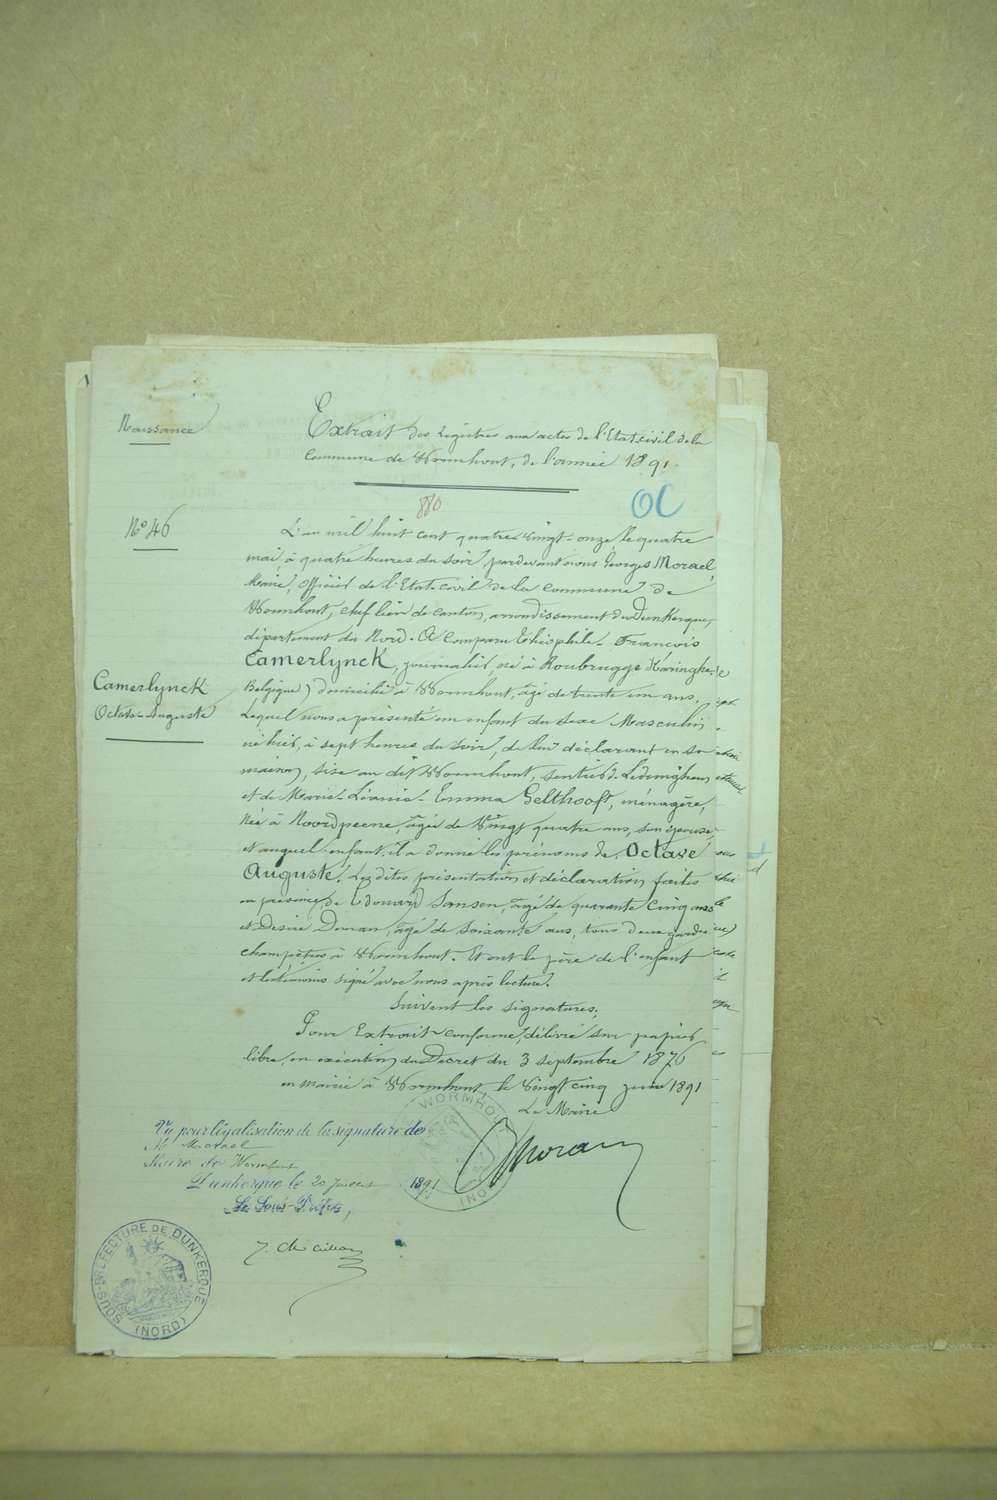 Naissance
Extrait des Registres aux actes de l'Etat civil de la
Commune de Wormhout, de l'année 1891.
880
OC
N° 46
L'an mil huit cent quatre vingt-onze le quatre
mai, à quatre heures du soir, pardevant nous Georges Morael,
Maire, Officier de l'Etat civil de la commune de
Wormhout, chef lieu de canton, arrondissement de Dunkerque,
département du Nord. A comparu Théophile-François
Camerlynck, journalier, né à Roubrugge Haringhe
Camerlynck
Octave-Auguste
Belgique) domicilié à Wormhout, âgé de trente un ans,
Lequel nous a présenté un enfant du sexe Masculin
né hier, à sept heures du soir, de lui déclarant en sa
maison, sise au dit Wormhout, sentier de Ledringhem,
et de Marie-Léonie-Emma Gelthooft, ménagère,
née à Noordpeene, âgée de vingt quatre ans, son épouse,
et auquel enfant il a donné les prénoms de Octave
Auguste. Lesdites présentation et déclaration faites
en présence de Edouard Sansen, âgé de quarante cinq ans
et Désiré Douan, âgé de soixante ans, tous deux gardes
champêtres à Wormhout. Et ont le père de l'enfant
et les témoins signé avec nous après lecture.
Suivent les signatures.
Pour Extrait conforme, délivré sur papier
libre, en exécution du Décret du 3 septembre 1876
en mairie à Wormhout, le vingt cinq juin 1891
Le Maire
Morael
WORMHOUT
(NORD)
Vu pour légalisation de la signature de
M Morael
Maire de Wormhout
Dunkerque le 20 Juillet 1891
Le Sous-Préfet,
SOUS-PRÉFECTURE DE DUNKERQUE
(NORD)